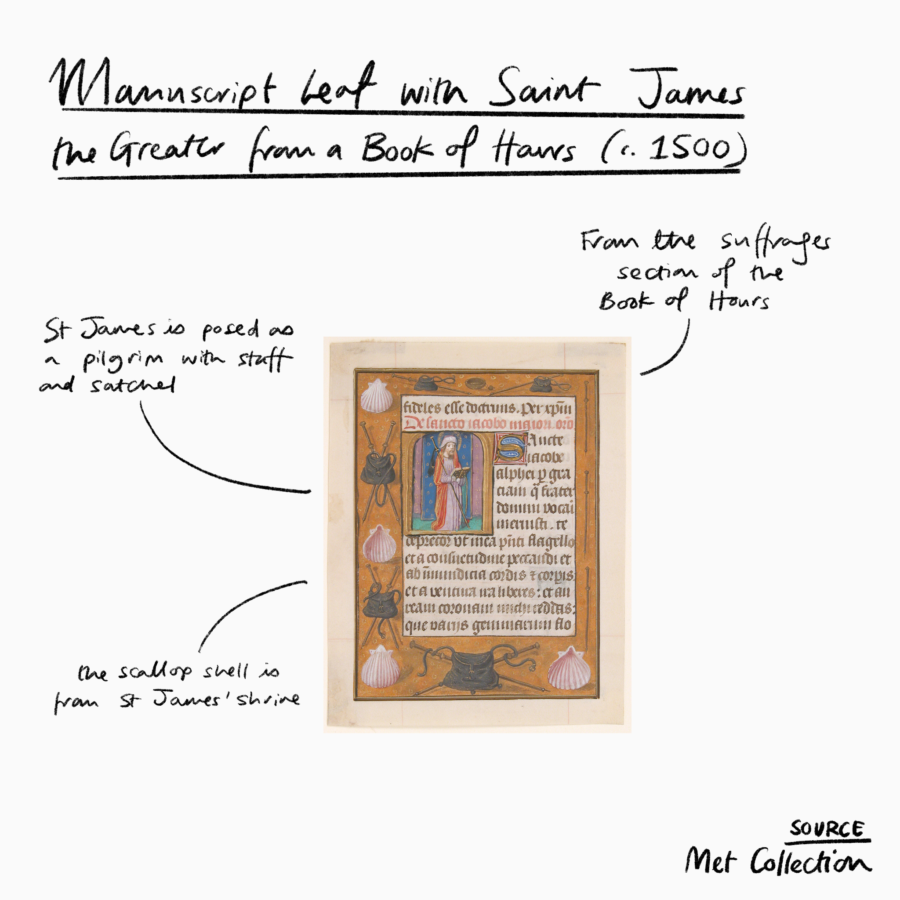 Manuscript Leaf with Saint James
the Greater from a Book of Hours (c. 1500)
From the suffrages
section of the
Book of Hours
St James is posed as
a pilgrim with staff
and satchel
fideles esse doctrinis. Per xp̄m
De sancto iacobo maiori. oro
Sancte
iacobe
alphei ꝑ gra
ciam q̄ frater
domini vocari
meruisti. te
deprecor vt mea
flagello
et a consuetudine peccandi et
ab īmundicia cordis ⁊ corpis
et a ventura ira liberes: et au
ream coronam michi reddas:
que variis gemmarum flo
the scallop shell is
from St James' shrine
SOURCE
Met Collection